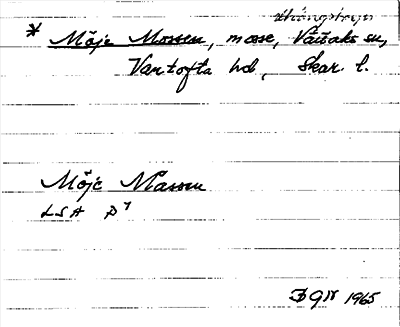 * Möje Mossen, mosse, Vättaks sn,
Vartofta hd, Skar. l.
Möje Massen
LSA P7
1965